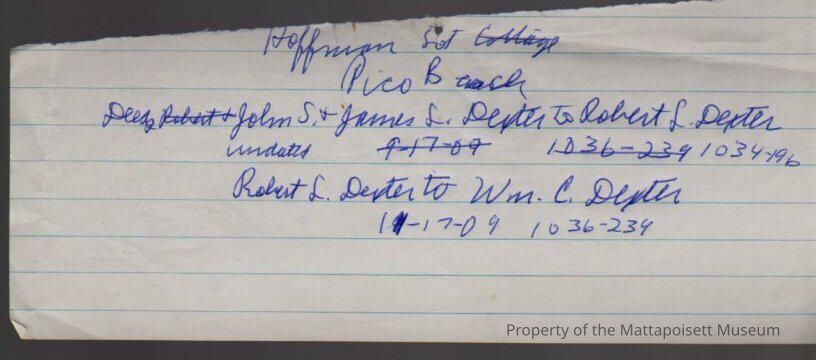 Hoffman Lot Cottage
Pico Beach
Deeds Robert + John S. + James L. Dexter to Robert L. Dexter
undated 9-17-09 1036-239 1034-196
Robert L. Dexter to Wm. C. Dexter
11-17-09 1036-239
Property of the Mattapoisett Museum